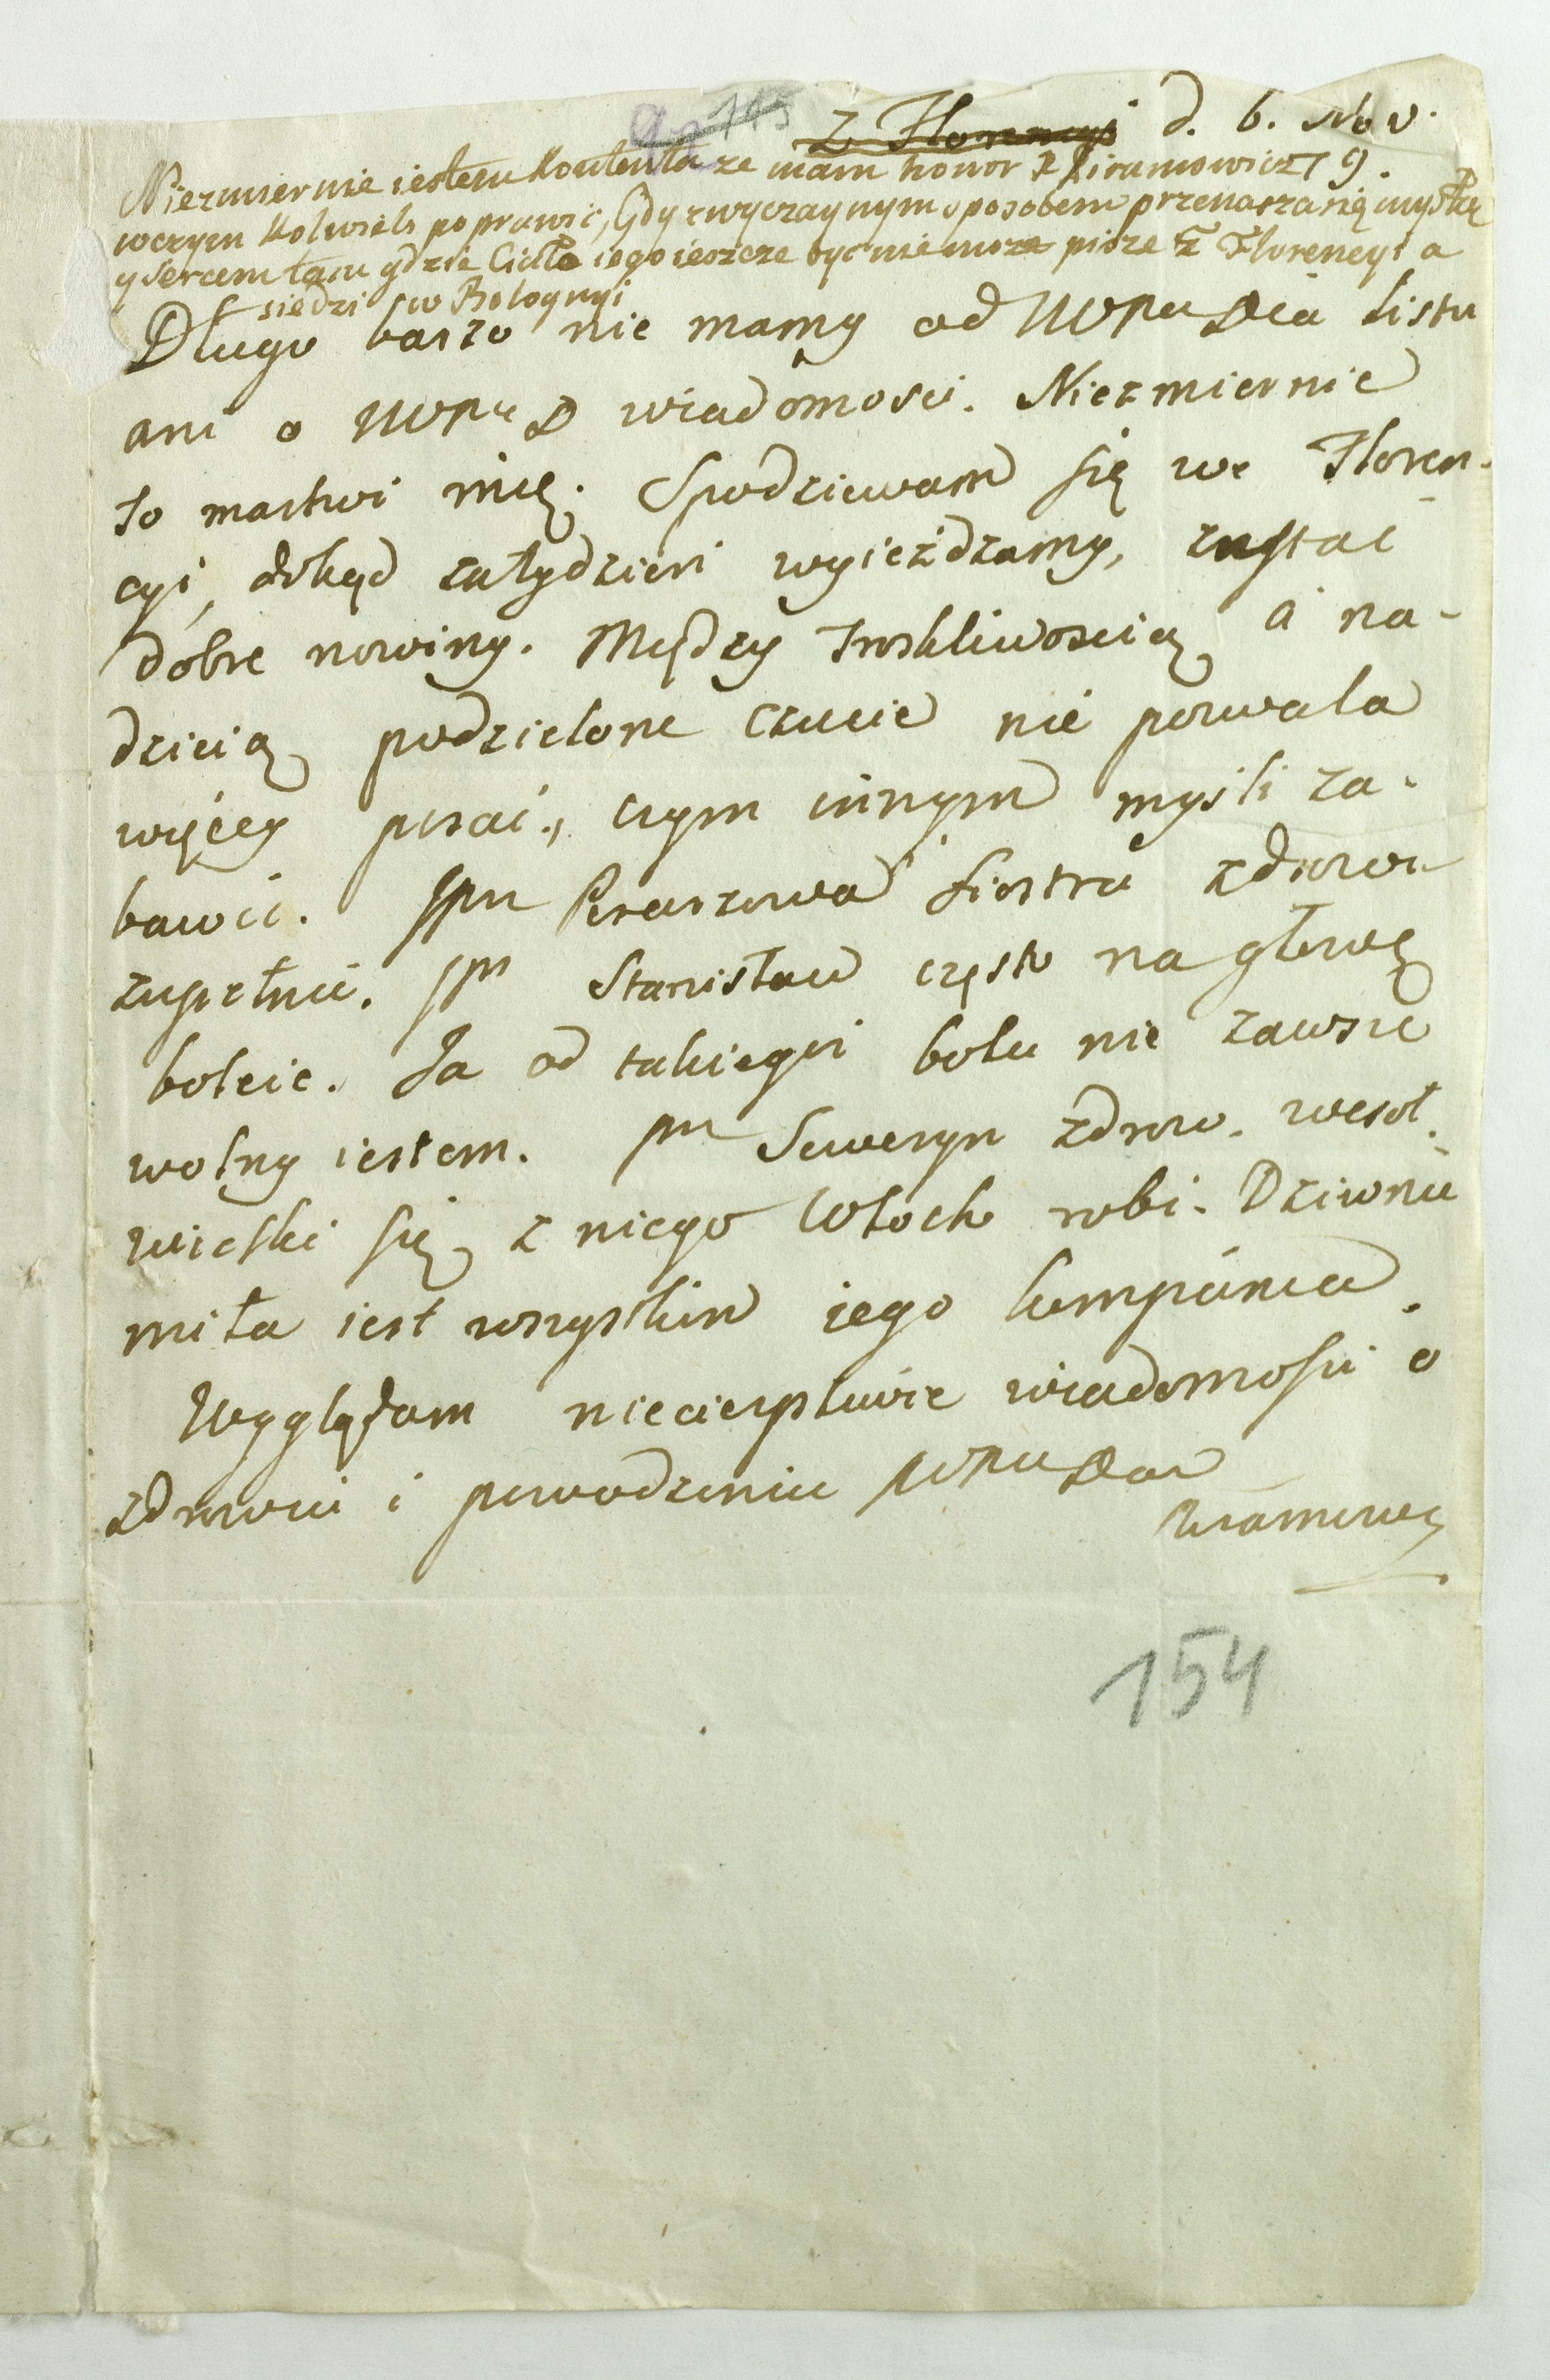 115
Z Florencyi d. 6. Nov.
Niezmiernie iestem kontenta ze mam honor X Piramowicza 79.
wczym kolwiek poprawic, Gdy zwyczaynym sposobem przenasza się myslą
y sercem tam gdzie Ciało iego ieszcze byc nie moze pisze z Florencyi a
siedzi w Bolognyi
Długo barzo nie mamy od WPu Dia listu
ani o WPu D wiadomosci. Niezmiernie
to martwi mię. Spodziewam się we Floren-
cyi, dokąd zatydzień wyieżdzamy, zastać
dobre nowiny. Między troskliwoscią a na-
dzieią podzielone czucie nie pozwala
więcey pisać, czym innym mysli za-
bawić. JPni siostra zdrowa
zupełnie. JPn Stanisław często na głowę
boleie. Ja od takiegoż bolu nie zawsze
wolny iestem. Pn Seweryn zdrow, wesoł.
wielki się z niego Włoch robi. Dziwnie
miła iest wszystkim iego kompania.
Wyglądam niecierpliwie wiadomosci o
zdrowiu i powodzeniu WPu Da
Piramowicz
154